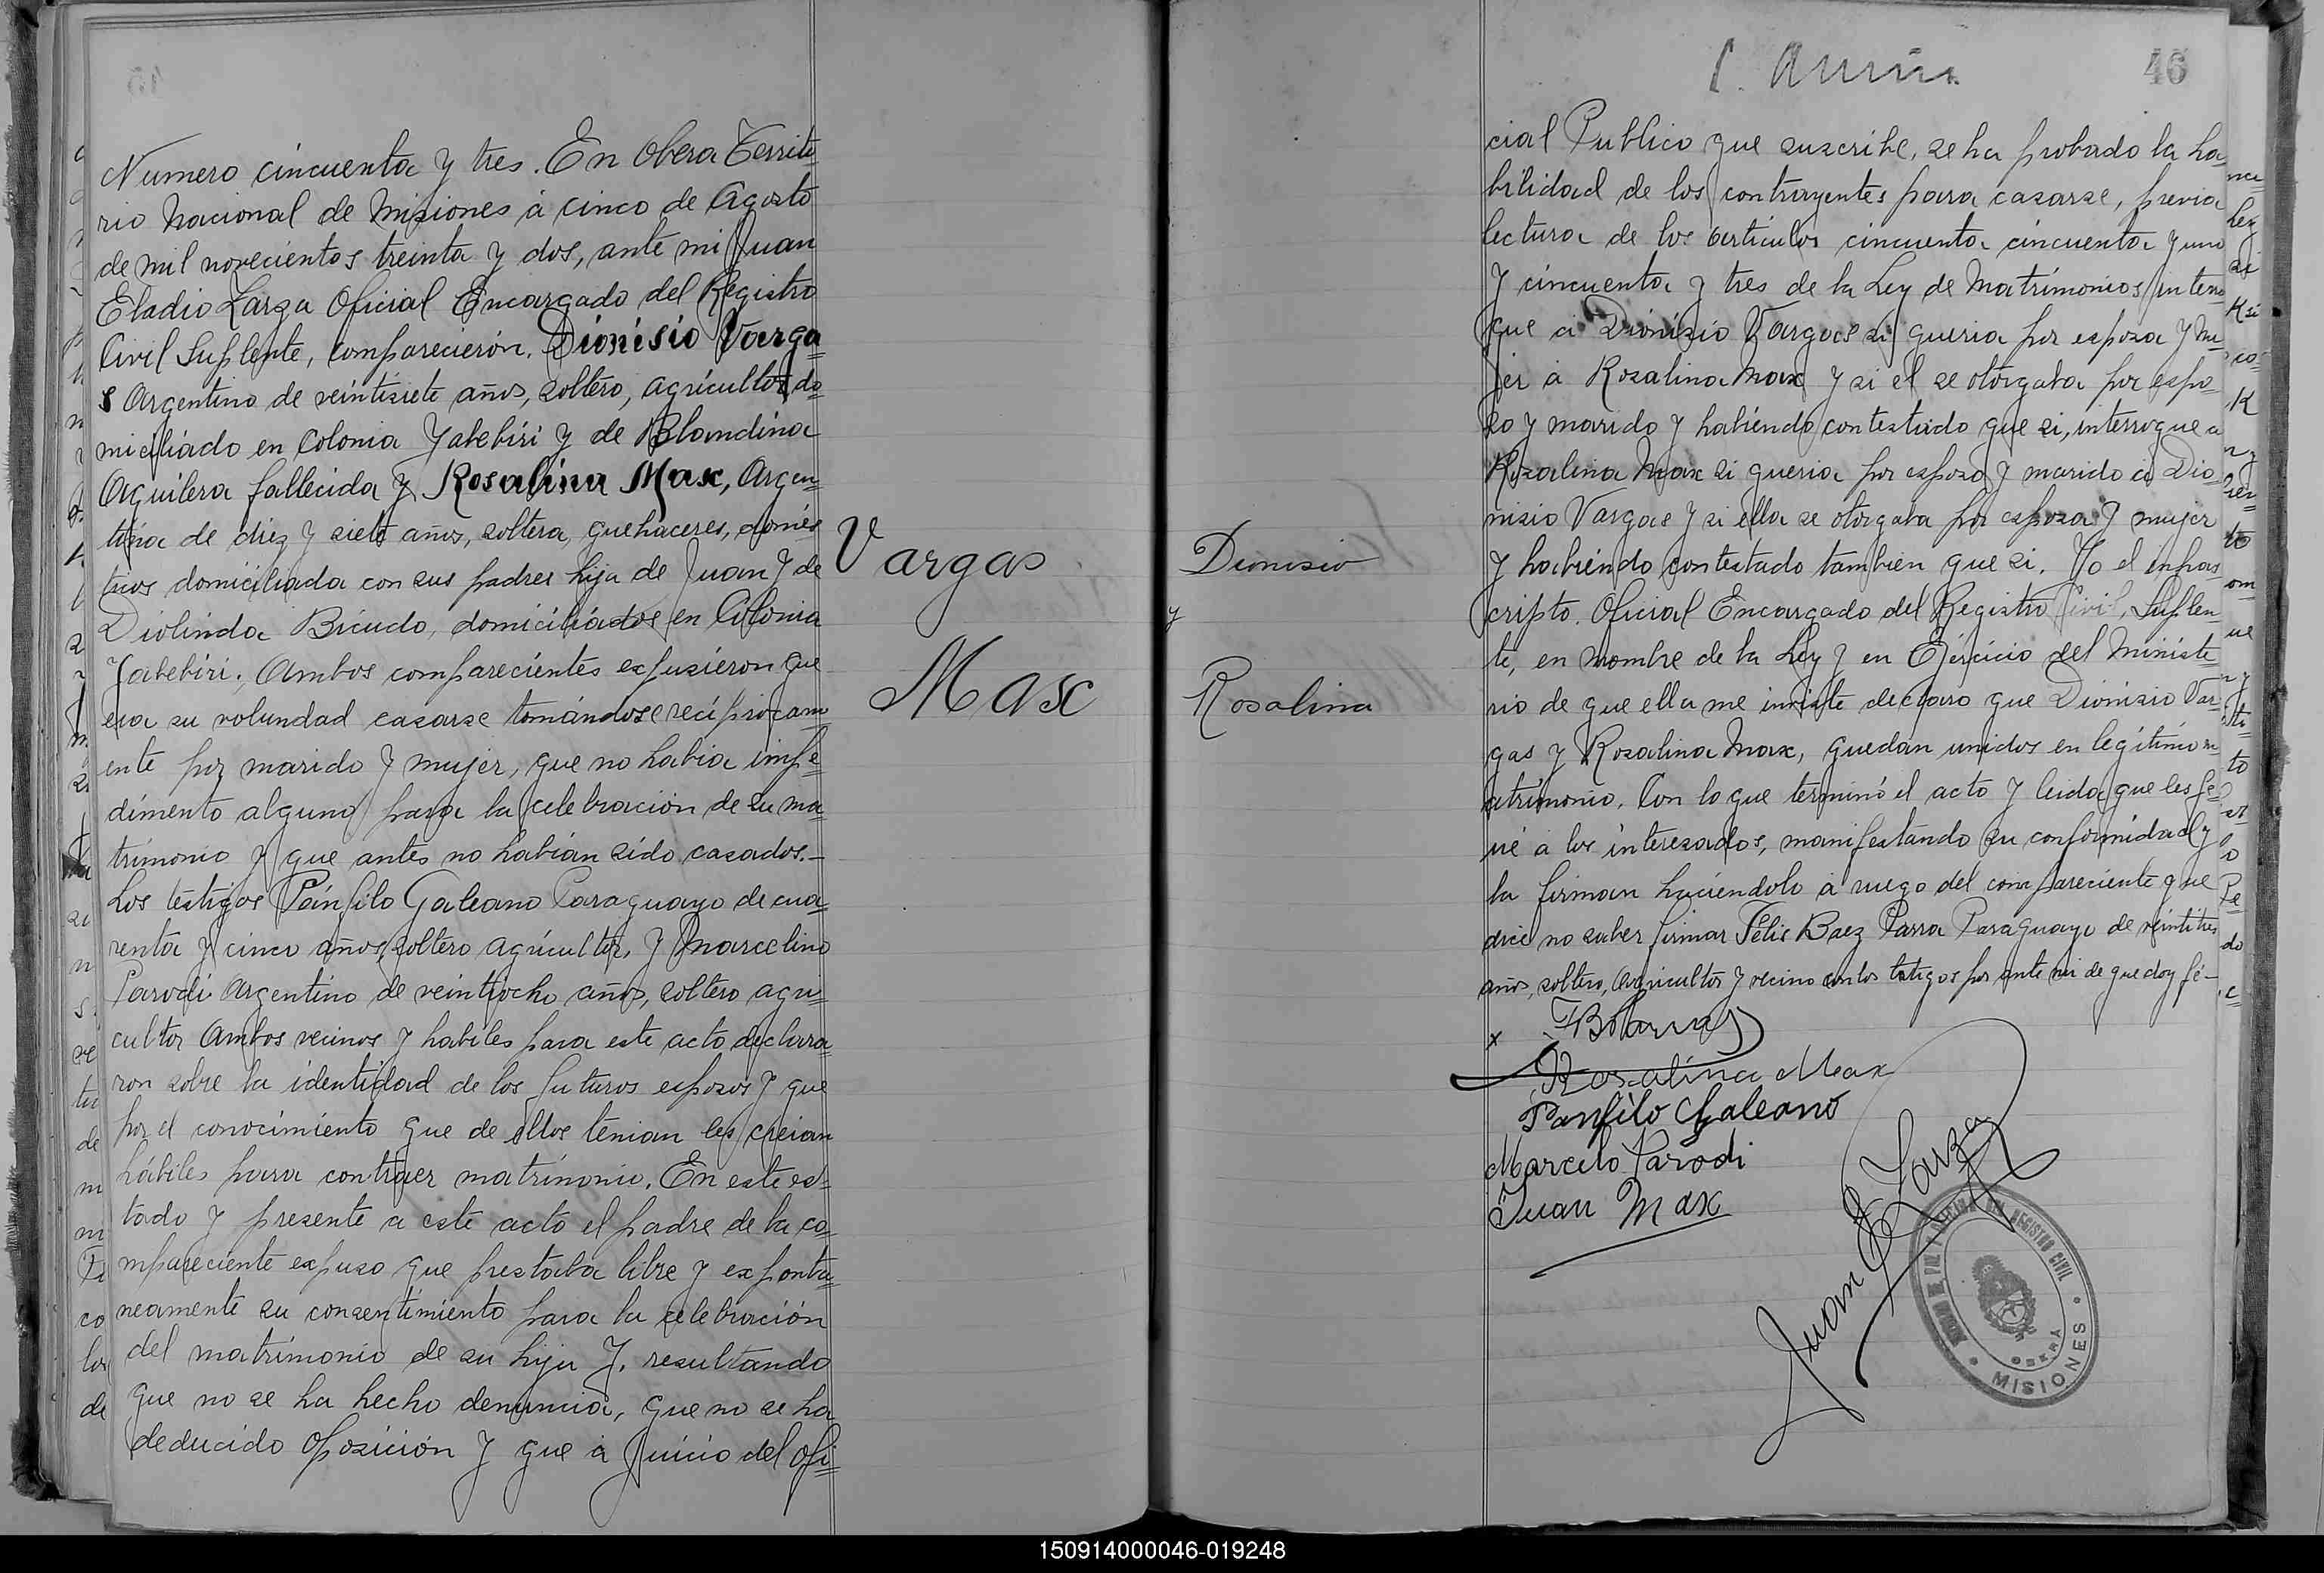 Numero cincuenta y tres. En Obera Territo
rio Nacional de Misiones á cinco de Agosto
de mil novecientos treinta y dos, ante mi Juan
Eladio Larza Oficial Encargado del Registro
Civil Suplente, comparecierón. Dionisio Varga
s Argentino de veintisiete años, soltero, agricultor do
miciliado en Colonia Yabebiri y de Blandina
Aguilera fallecida y Rosalina Max, Argen
tina de diez y siete años, soltera, quehaceres, domés
ticos domiciliada con sus padres hija de Juan y de
Diolinda Bicudo, domiciliados en Colonia
Yabebiri. Ambos comparecientes expusieron que
era su volundad casarse tomándose recíprocam
ente por marido y mujer, que no habia impe
dimento alguno para la celebración de su ma
trimonio y que antes no habian sido casados.—
Los testigos Pánfilo Galeano Paraguayo de cua
renta y cinco años, soltero agricultor, y Marcelino
Parodi Argentino de veintiocho años, soltero agri
cultor Ambos vecinos y habiles para este acto declara
ron sobre la identidad de los futuros esposos y que
por el conocimiento que de ellos tenian les creian
hábiles para contraer matrimonio. En este es
tado y presente a este acto el padre de la co
mpareciente expuso que prestaba libre y esponta
neamente su consentimiento para la celebración
del matrimonio de su hija y. resultando
que no se ha hecho denuncia, que no se ha
deducido oposición y que á juicio del ofi
Vargas
Max
46
Dionisio
y
Rosalina
cial Publico que suscribe, se ha probado la ha
bilidad de los contrayentes para casarse, previa
lectura de los articulos cincuenta cincuenta y uno
y cincuenta y tres de la Ley de Matrimonios, interro
gue a Dionisio Vargas si queria por esposa y mu
jer á Rosalina Max y si el se otorgaba por espo
so y marido y habiendo contestado que si, interrogue a
Rosalina Max si queria por esposo y marido a Dio
nisio Vargas y si ella se otorgaba por esposa y mujer
y habiendo contestado tambien que si. Yo el infras
cripto. Oficial Encargado del Registro Civil, Suplen
te, en nombre de la Ley y en Ejercicio del Ministe
rio de que ella me inviste declaro que Dionisio Var
gas y Rosalina Max, quedan unidos en legítimo m
atrimonio. Con lo que terminó el acto y leida que les fe
ué á los interesados, manifestando su conformidad y
la firman haciéndolo á ruego del compareciente que
dice no saber firmar Félis Baez Parra Paraguayo de veintitres
años, soltero, agricultor y vecino con los testigos por ante mi de que doy fé—
x
Rosalina Max
Panfilo Galeano
Marcelo Parodi
Juan Max
Juan E Larza
REGISTRO CIVIL
OBERÁ
MISIONES
150914000046-019248